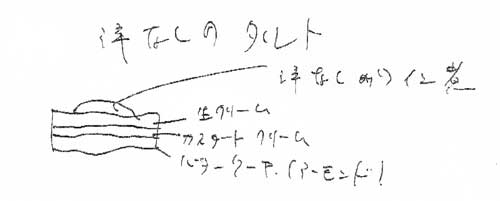 洋なしのタルト
洋なしのシロップ煮
生クリーム
カスタードクリーム
バターケーキ(アーモンド)